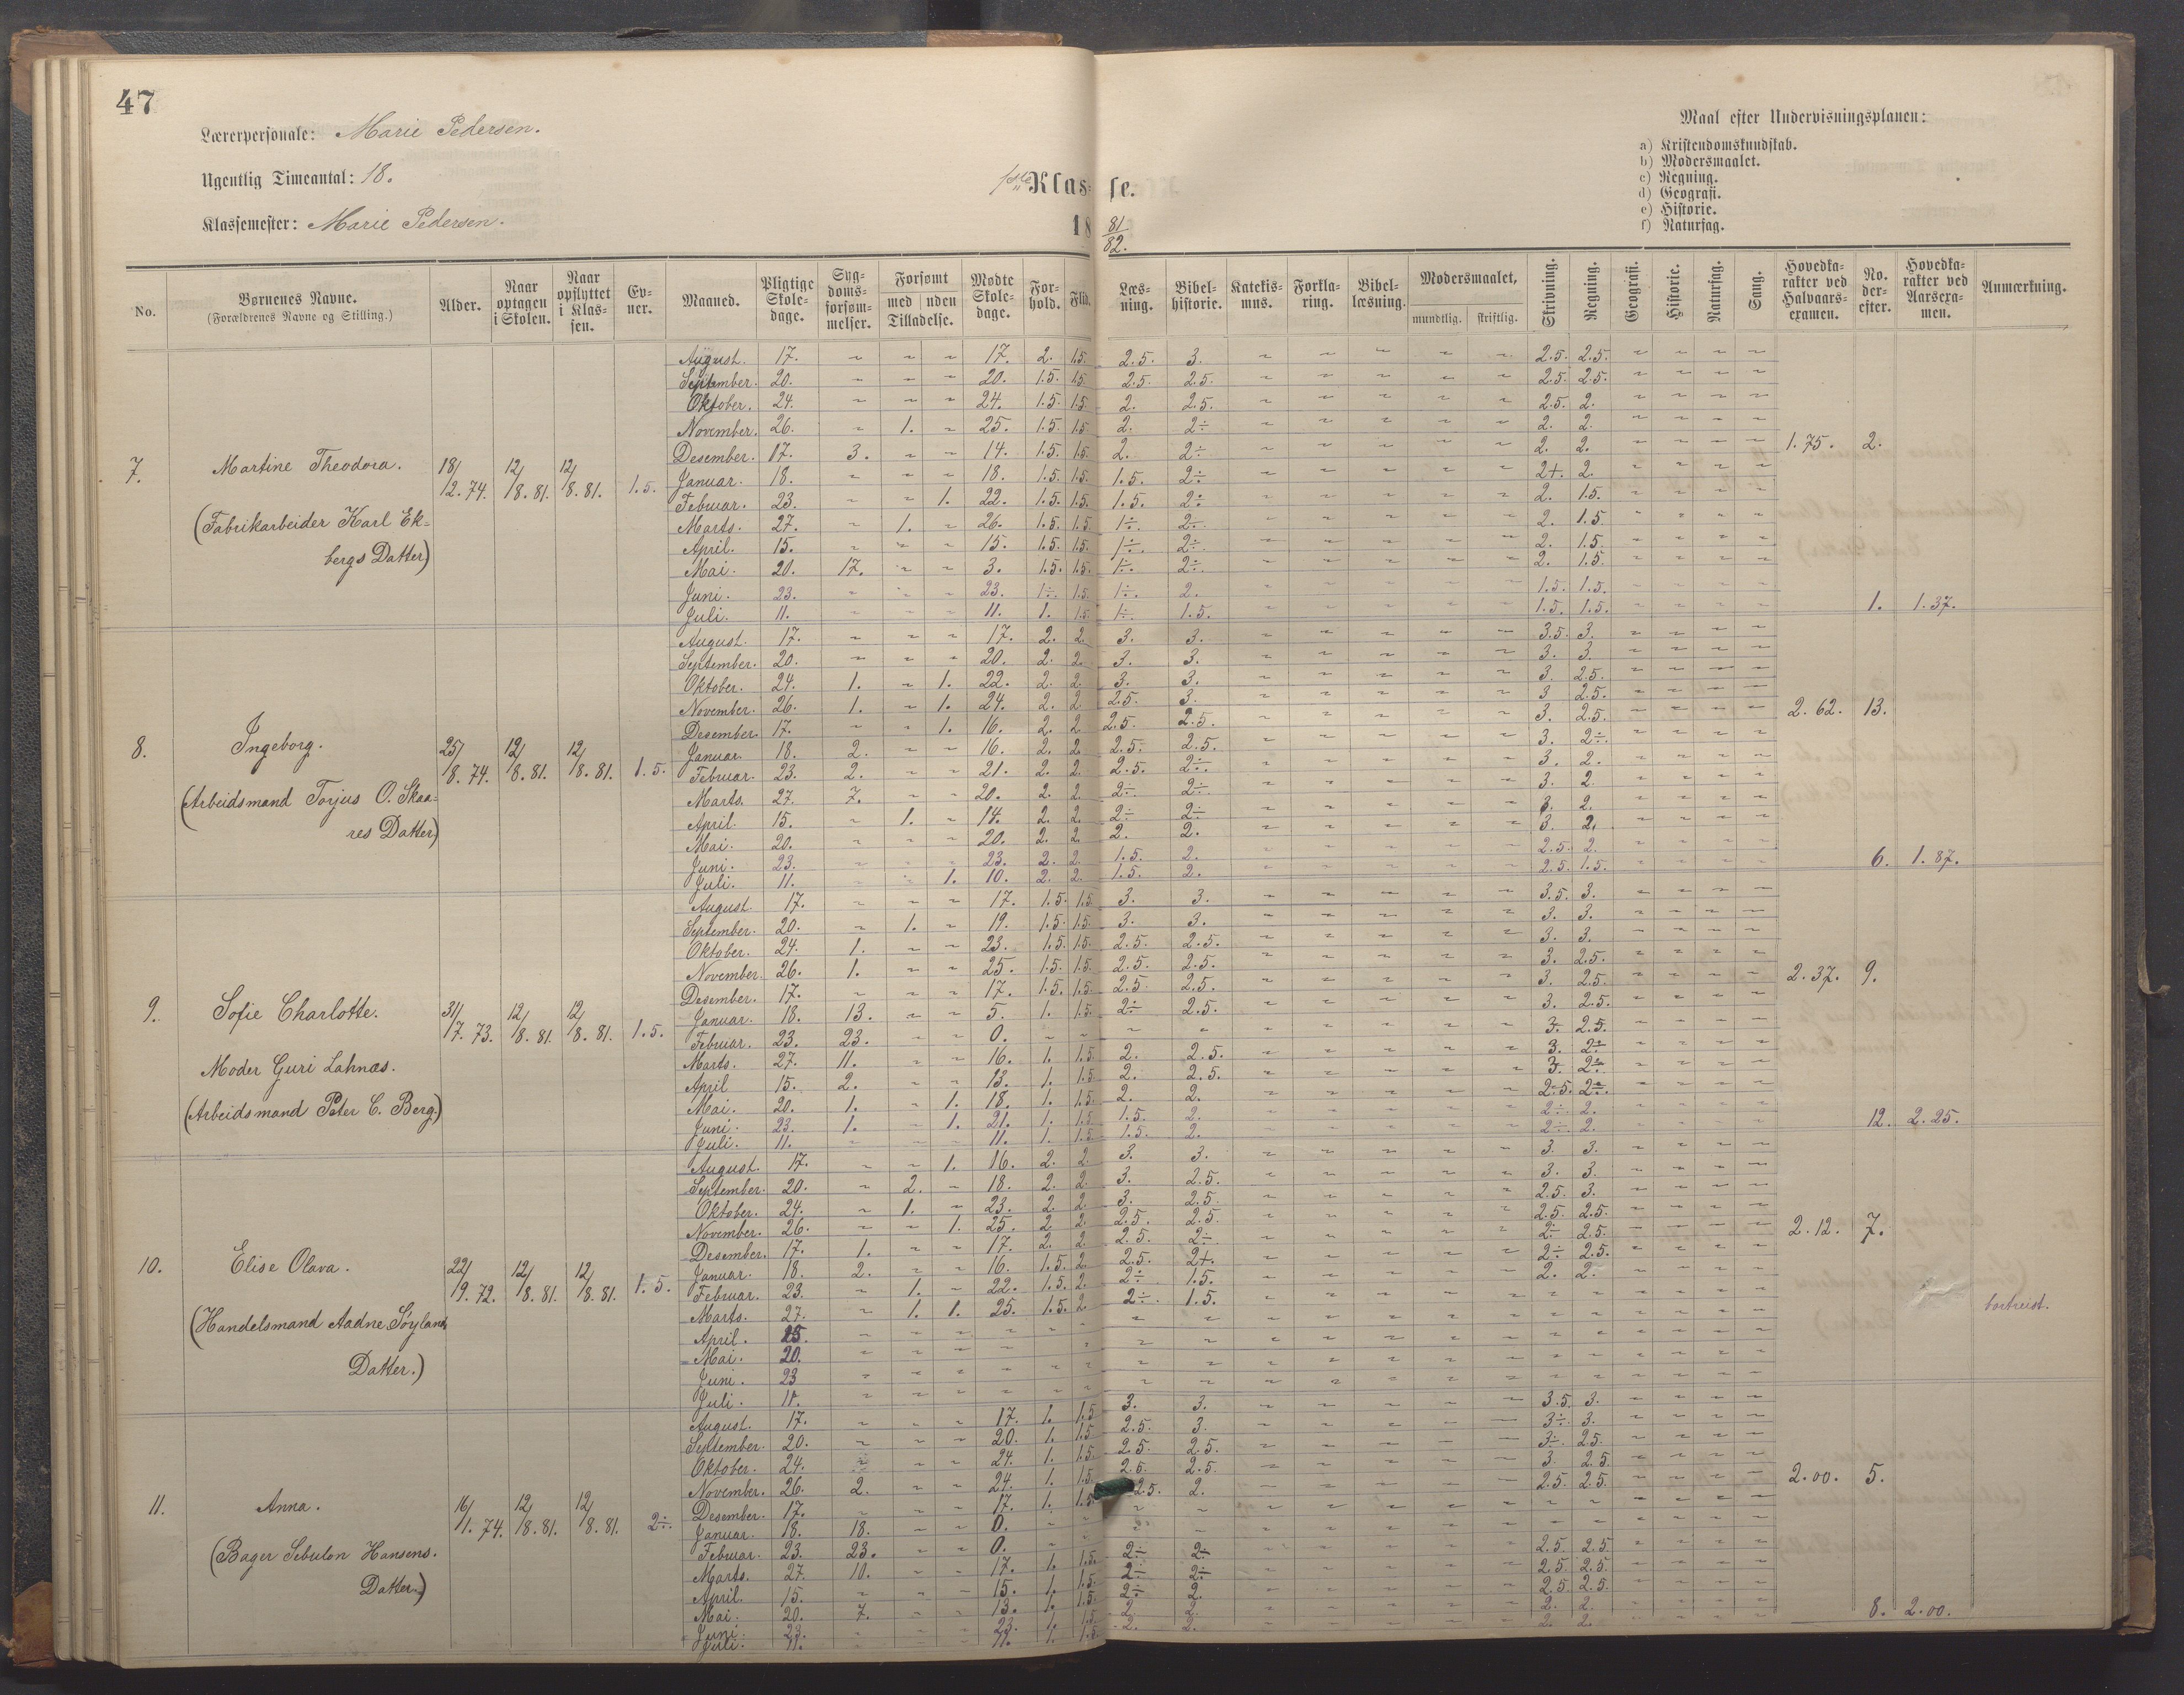 47
Lærerpersonale: Marie Pedersen.
Ugentlig Timeantal: 18.
Klassemester: Marie Pedersen.
1ste Klasse.
18 81/82.
Maal efter Undervisningsplanen:
a) Kristendomskundskab.
b) Modersmaalet.
c) Regning.
d) Geografi.
e) Historie.
f) Naturfag.
No. | Børnenes Navne. (Forældrenes Navne og Stilling.) | Alder. | Naar optagen i Skolen. | Naar opflyttet i Klassen. | Evner. | Maaned. | Pligtige Skoledage. | Sygdomsforsømmelser. | Forsømt med uden Tilladelse. | Mødte Skoledage. | Forhold. | Flid. | Læsning. | Bibelhistorie. | Katekismus. | Forklaring. | Bibellæsning. | Modersmaalet, mundtlig. skriftlig. | Skrivning. | Regning. | Geografi. | Historie. | Naturfag. | Sang. | Hovedkarakter ved Halvaarsexamen. | No. derefter. | Hovedkarakter ved Aarsexamen. | Anmærkning.
7. Martine Theodora. 18/12.74. 12/8.81. 12/8.81. 1.5.
(Fabrikarbeider Karl Ekbergs Datter)
August. 17. ~ ~ ~ 17. 2. 1.5. 2.5. 3. 2.5. 2.5.
September. 20. ~ ~ ~ 20. 1.5. 1.5. 2.5. 2.5. 2.5. 2.5.
Oktober. 24. ~ ~ ~ 24. 1.5. 1.5. 2. 2.5. 2.5. 2.
November. 26. ~ 1. ~ 25. 1.5. 1.5. 2. 2÷ 2. 2.
Desember. 17. 3. ~ ~ 14. 1.5. 1.5. 2. 2÷ 2. 2. 1.75. 2.
Januar. 18. ~ ~ ~ 18. 1.5. 1.5. 1.5. 2÷ 2+. 2.
Februar. 23. ~ ~ 1. 22. 1.5. 1.5. 1.5. 2÷ 2. 1.5.
Marts. 27. ~ 1. ~ 26. 1.5. 1.5. 1÷. 2÷. 2. 1.5.
April. 15. ~ ~ ~ 15. 1.5. 1.5. 1÷. 2÷. 2. 1.5.
Mai. 20. 17. ~ ~ 3. 1.5. 1.5. 1÷. 2÷. 2. 1.5.
Juni. 23. ~ ~ ~ 23. 1÷. 1.5. 1÷. 2. 1.5. 1.5.
Juli. 11. ~ ~ ~ 11. 1. 1.5. 1÷ 1.5. 1.5. 1.5. 1. 1.37.
8. Ingeborg. 25/8.74. 12/8.81. 12/8.81. 1.5.
(Arbeidsmand Torjus O. Skaares Datter)
August. 17. ~ ~ ~ 17. 2. 2. 3. 3. 3.5. 3.
September. 20. ~ ~ ~ 20. 2. 2. 3. 3. 3. 3.
Oktober. 24. 1. ~ 1. 22. 2. 2. 3. 3. 3. 2.5.
November. 26. 1. ~ 1. 24. 2. 2. 2.5. 3. 3 2.5.
Desember. 17. ~ ~ 1. 16. 2. 2. 2.5. 2.5. 3. 2.5. 2.62. 13.
Januar. 18. 2. ~ ~ 16. 2. 2. 2.5. 2.5. 3. 2÷.
Februar. 23. 2. ~ ~ 21. 2. 2. 2.5. 2÷. 3. 2.
Marts. 27. 7. ~ ~ 20. 2. 2. 2÷. 2÷ 3. 2.
April. 15. ~ 1. ~ 14. 2. 2. 2÷ 2÷ 3. 2.
Mai. 20. ~ ~ ~ 20. 2. 2. 2. 2. 3. 2.
Juni. 23. ~ ~ ~ 23. 2. 2. 1.5. 2. 2.5. 2.
Juli. 11. ~ ~ 1. 10. 2. 2. 1.5. 2. 2.5. 1.5. 6. 1.87.
9. Sofie Charlotte. 31/7.73. 12/8.81. 12/8.81. 1.5.
Moder Guri Lahnas.
(Arbeidsmand Peter C. Berg.)
August. 17. ~ ~ ~ 17. 1.5. 1.5. 3. 3. 3.5. 3.
September. 20. ~ 1. ~ 19. 1.5. 1.5. 3. 3. 3. 3.
Oktober. 24. 1. ~ ~ 23. 1.5. 1.5. 2.5. 2.5. 3. 3.
November. 26. 1. ~ ~ 25. 1.5. 1.5. 2.5. 2.5. 3. 2.5.
Desember. 17. ~ ~ ~ 17. 1.5. 1.5. 2.5. 2.5. 3. 2.5. 2.37. 9.
Januar. 18. 13. ~ ~ 5. 1. 1.5. 2÷ 2.5. 3. 2.5.
Februar. 23. 23. ~ ~ 0. ~ ~ ~ ~ 3. 2.5.
Marts. 27. 11. ~ ~ 16. 1. 1.5. 2. 2.5. 3. 2÷
April 15. 2. ~ ~ 13. 1. 1.5. 2. 2.5. 3. 2÷.
Mai. 20. 1. ~ 1. 18. 1. 1.5. 2. 2. 2.5. 2÷.
Juni. 23. 1. ~ 1. 21. 1. 1.5 1.5. 2. 2÷. 2.
Juli. 11. ~ ~ ~ 11. 1. 1.5 1.5. 2. 2÷ 2. 12. 2.25.
10. Elise Olava. 22/9.72. 12/8.81. 12/8.81. 1.5.
(Handelsmand Aadne Søyland Datter.)
August. 17. ~ ~ 1. 16. 2. 2. 3. 3. 3. 3.
September. 20. ~ 2. ~ 18. 2. 2. 3. 2.5. 3. 3.
Oktober. 24. ~ 1. ~ 23. 2. 2. 3. 2.5. 2.5. 3.
November. 26. ~ ~ 1. 25. 2. 2. 2.5. 2.5. 2.5. 2.5.
Desember. 17. 1. ~ ~ 17. 2. 2. 2.5. 2÷ 2÷ 2.5. 2.12. 7.
Januar. 18. 2. ~ ~ 16. 1.5. 2 2.5. 2+. 2÷ 2.5.
Februar. 23. ~ 1. ~ 22. 1.5. 2. 2÷ 1.5. 2. 2.
Marts. 27. ~ 1. 1. 25. 1.5. 2 2÷. 1.5. bortreist.
April. 15. ~ ~ ~ ~ ~ ~
Mai. 20. ~ ~ ~ ~
Juni. 23 ~ ~ ~ ~ ~ ~
Juli. 11. ~ ~ ~ ~ ~ ~
11. Anna. 16/1.74. 12/8.81. 12/8.81. 2÷.
(Bager Sebulon Hansens. Datter.)
August. 17. ~ ~ ~ 17. 1. 1.5 3. 3. 3.5. 3.
September. 20. ~ ~ ~ 20. 1. 1.5 2.5. 3. 3÷. 3.
Oktober. 24. ~ ~ ~ 24. 1. 1.5. 2.5. 2.5. 3÷. 2.5.
November. 26. 2. ~ ~ 24. 1. 1.5. 2.5. 2.5. 3. 2.5.
Desember. 17. ~ ~ ~ 17. 1. 1.5. 2.5. 2. 2.5. 2.5. 2.00. 5.
Januar. 18. 18. ~ ~ 0. ~ ~ ~ ~
Februar. 23. 23. ~ ~ 0. ~ ~ ~ ~
Marts. 27. 10. ~ ~ 17. 1. 1.5. 2÷ 2÷ 2.5. 2.5.
April. 15. ~ ~ ~ 15. 1. 1.5. 2÷ 2÷ 2.5. 2.5.
Mai. 20. 7. ~ ~ 13. 1. 1.5. 2÷ 2. 2.5 2.5.
Juni. 23. ~ ~ ~ 23. 1. 1.5. 2. 2. 2. 2.
Juli. 11. ~ ~ ~ 11. 1. 1.5. 2. 2. 2. 2. 8. 2.00.